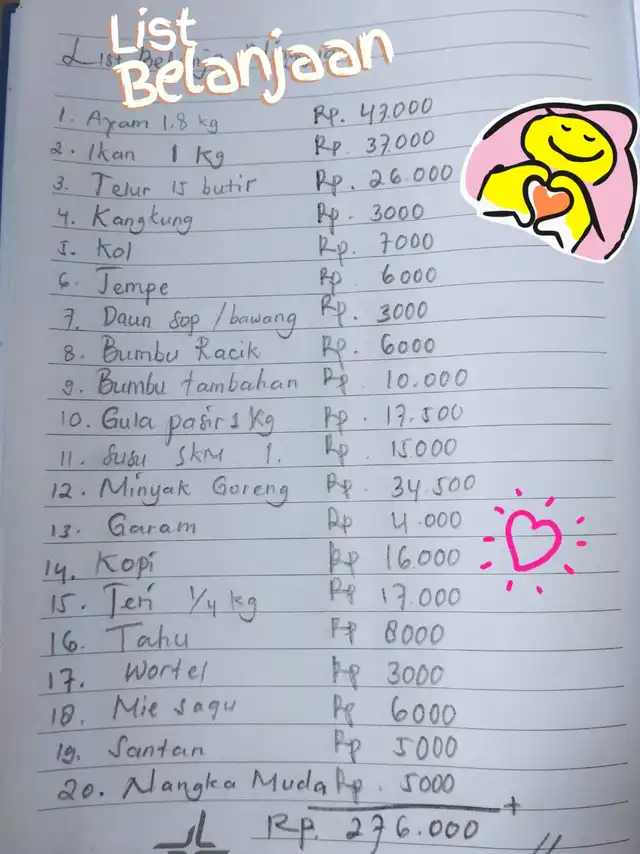 List
Belanjaan
List Belanja
1. Ayam 1.8 kg Rp. 47.000
2. Ikan 1 kg Rp. 37.000
3. Telur 15 butir Rp. 26.000
4. Kangkung Rp. 3000
5. Kol Rp. 7000
6. Tempe Rp 6000
7. Daun sop / bawang Rp. 3000
8. Bumbu Racik Rp. 6000
9. Bumbu tambahan Rp. 10.000
10. Gula pasir 1 Kg Rp. 17.500
11. Susu SKM 1. Rp. 15.000
12. Minyak Goreng Rp. 34.500
13. Garam Rp 4.000
14. Kopi Rp 16.000
15. Teri 1/4 kg Rp 17.000
16. Tahu Rp 8000
17. Wortel Rp 3000
18. Mie sagu Rp 6000
19. Santan Rp 5000
20. Nangka Muda Rp. 5000
+
Rp. 276.000 //